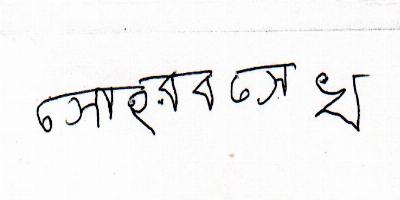 সোহরাব সেখ